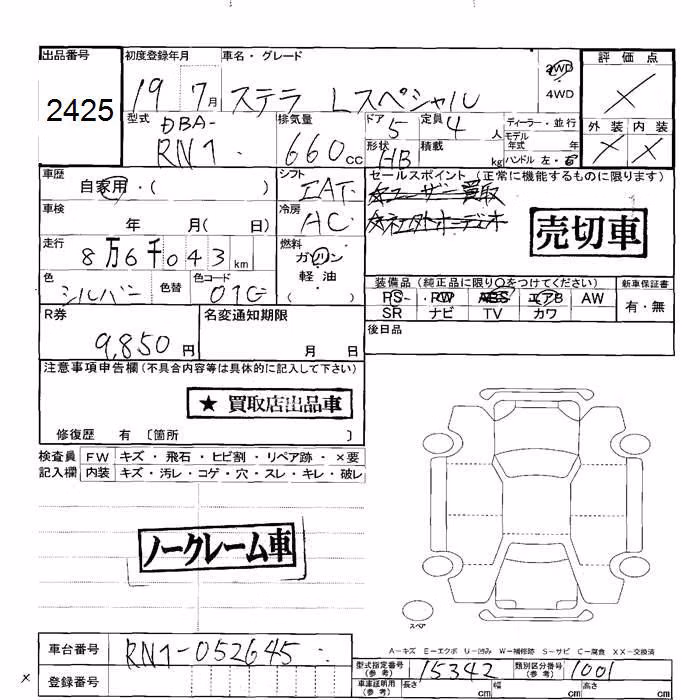 出品番号 初度登録年月 車名・グレード 評価点
2425 19 7月 ステラ Lスペシャル 2WD
4WD
型式 DBA- 排気量 ドア 5 定員 4 人 ディーラー・並行 外装 内装
RN1 660cc 形状 HB 積載 kg モデル年式 年
ハンドル 左・右
車歴 シフト セールスポイント(正常に機能するものに限ります)
自家用・( ) IAT ユーザー買取
車検 冷房
年 月( 日) AC
売切車
走行 燃料
8万6千043km ガソリン
軽油
色 色替 色コード ( )
シルバー 01G
装備品(純正品に限り○をつけてください) 新車保証書
PS PW ABS エアB AW 有・無
SR ナビ TV カワ
R券 名変通知期限 後日品
9,850円 月 日
注意事項申告欄(不具合内容等は具体的に記入して下さい)
★買取店出品車
修復歴 有 〔箇所 〕
検査員 FW キズ・飛石・ヒビ割・リペア跡・×要
記入欄 内装 キズ・汚レ・コゲ・穴・スレ・キレ・破レ
ノークレーム車
スペア
A-キズ E-エクボ U-凹み W-補修跡 S-サビ C-腐食 XX-交換済
車台番号 RN1-052645
型式指定番号(参考) 15342 類別区分番号(参考) 1001
登録番号
車庫証明用(参考) 長さ cm 幅 cm 高さ cm